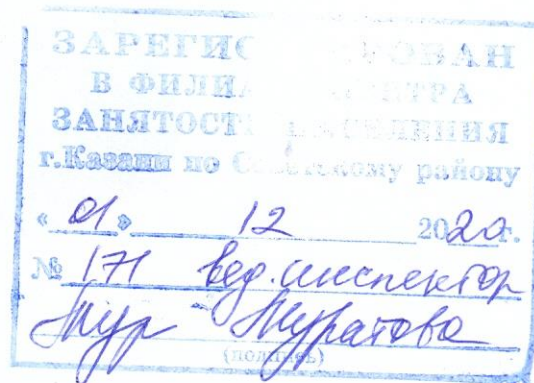 ЗАРЕГИС РОВАН
В ФИЛИА НТРА
ЗАНЯТОСТ НАСЕЛЕНИЯ
г.Казани по Советскому району
«01» 12 2020г.
№ 171 вед. инспектор
Мур Муратова
(подпись)